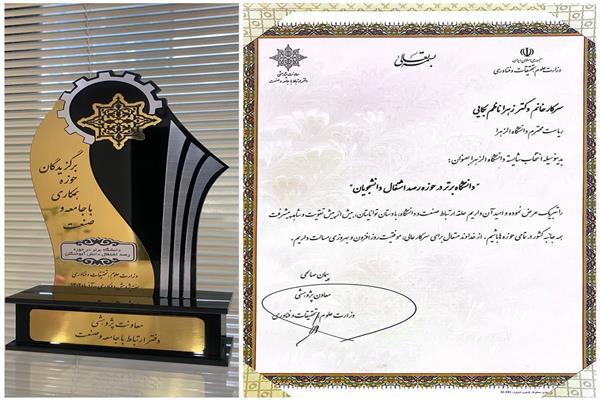 برگزیدگان
حوزه
همکاری
با جامعه و
صنعت
دانشگاه برتر در حوزه
رصد اشتغال دانش آموختگان
وزارت علوم، تحقیقات و فناوری
معاونت پژوهشی
دفتر ارتباط با جامعه و صنعت
جمهوری اسلامی ایران
وزارت علوم، تحقیقات و فناوری
معاونت پژوهشی
دفتر ارتباط با جامعه و صنعت
سرکار خانم دکتر زهرا ناظم بکایی
ریاست محترم دانشگاه الزهرا
بدینوسیله انتخاب شایسته دانشگاه الزهرا بعنوان:
"دانشگاه برتر در حوزه رصد اشتغال دانشجویان"
را تبریک عرض نموده و امید آن داریم حلقه ارتباط صنعت و دانشگاه، با دستان توانایتان، بیش از پیش تقویت و شاهد پیشرفت
همه جانبه کشور در تمامی حوزه ها باشیم. از خداوند متعال برای سرکار عالی، موفقیت روز افزون و بهروزی مسالت داریم.
پیمان صالحی
معاون پژوهشی
وزارت علوم، تحقیقات و فناوری